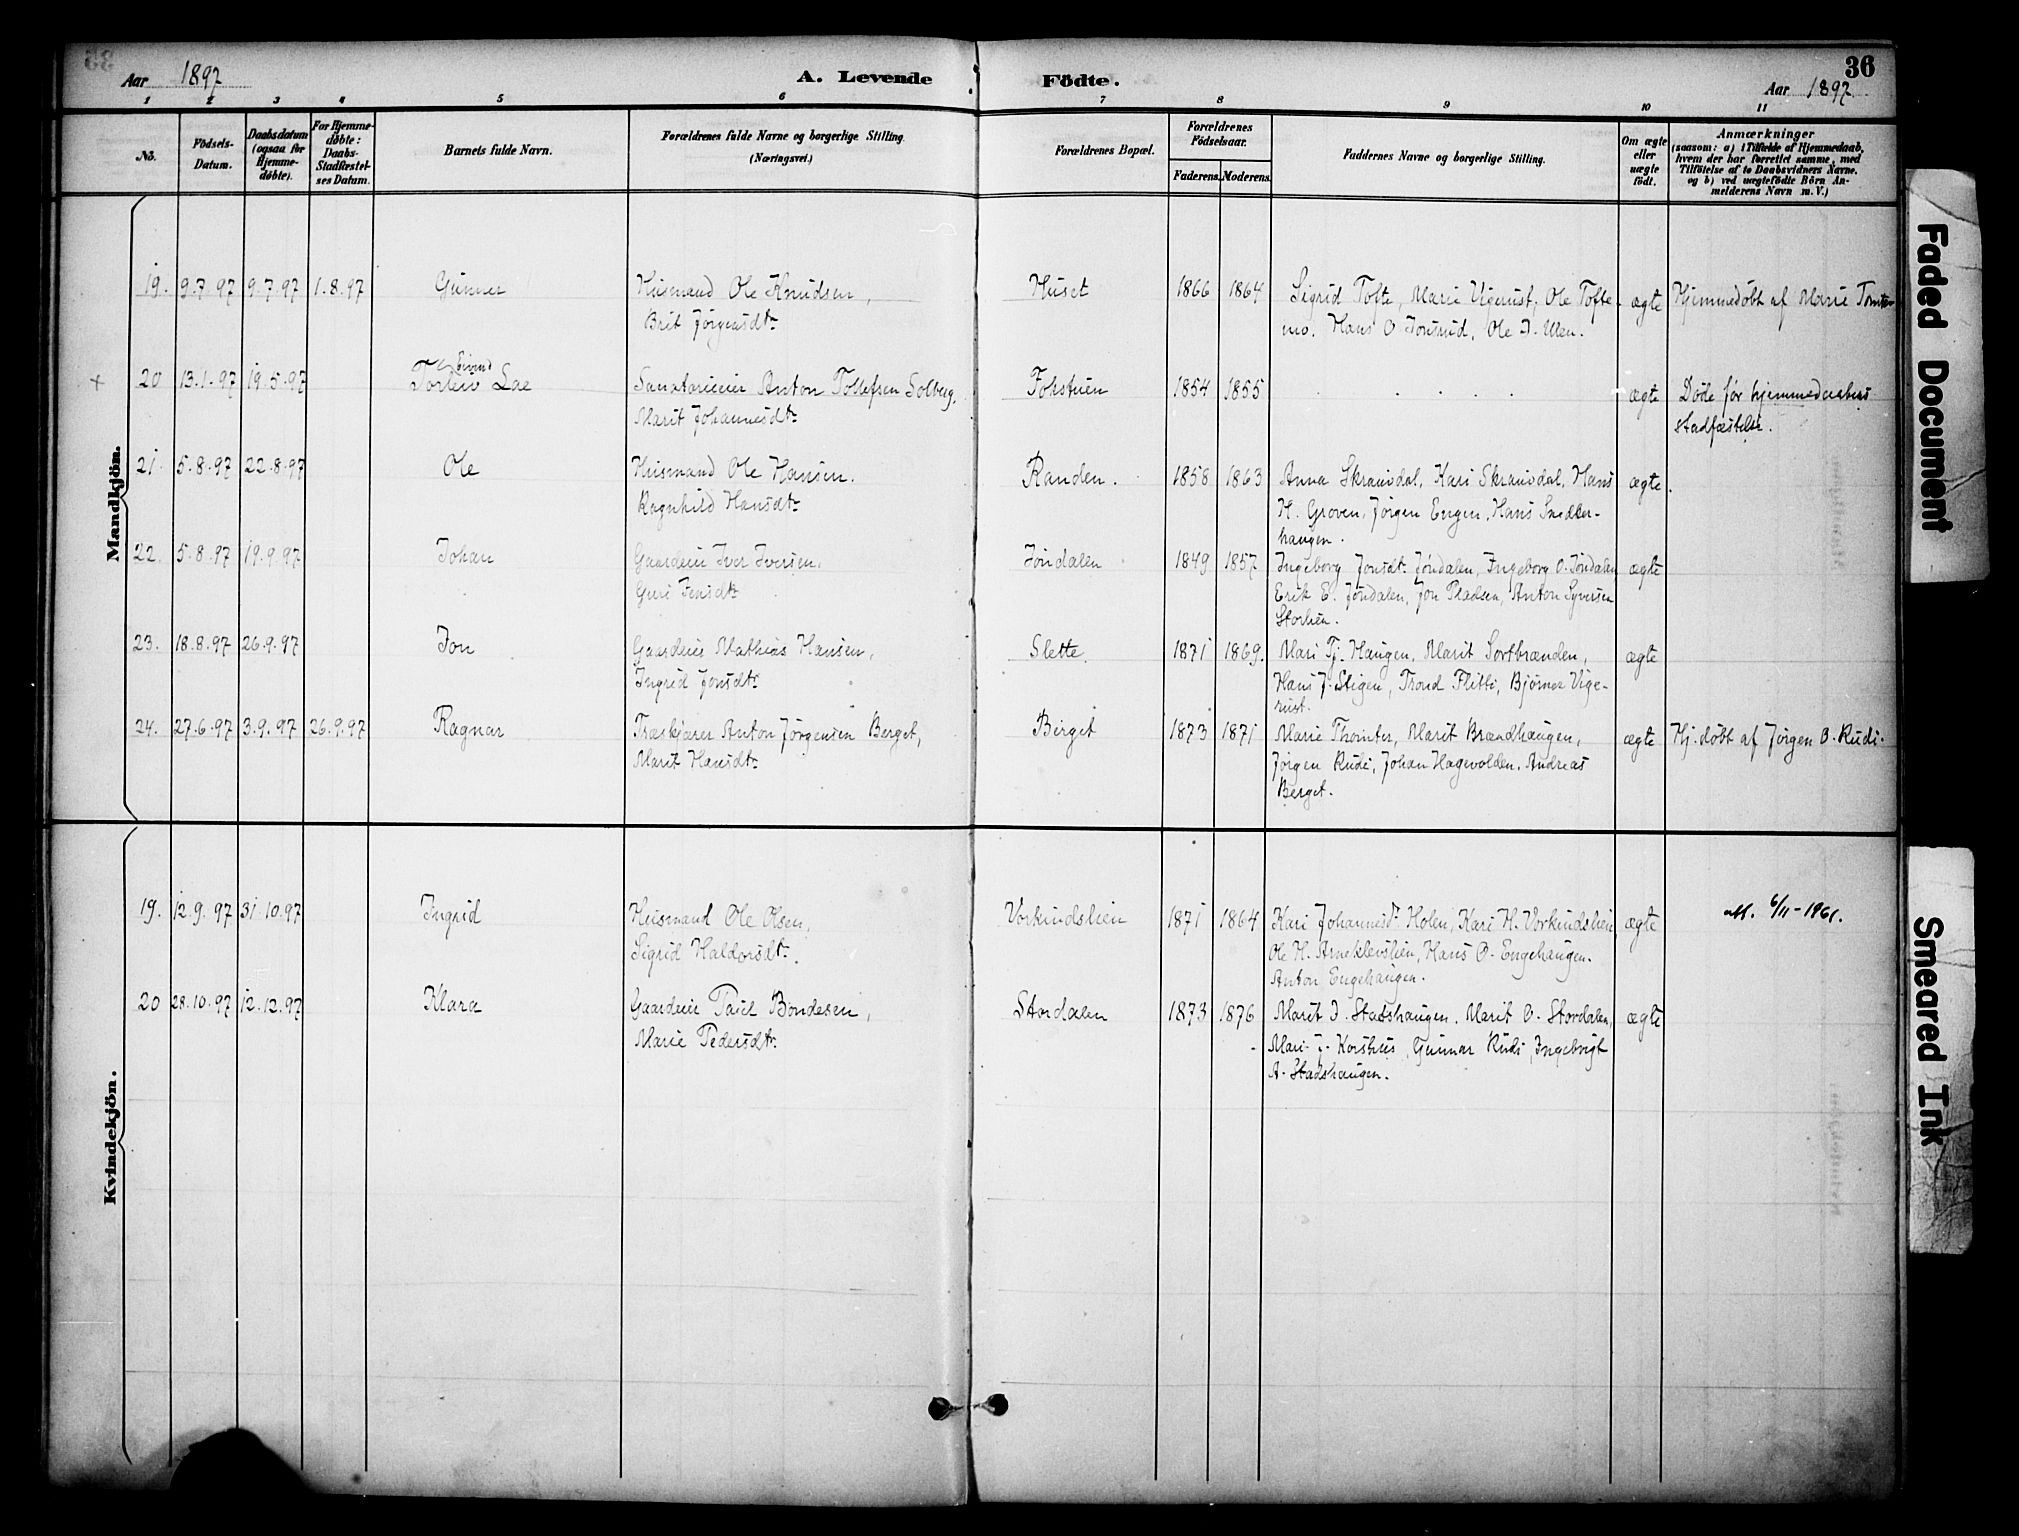 36
Aar 1897
A. Levende Födte.
Aar 1897
1 2 3 4 5 6 7 8 9 10 11
No.
Födsels-Datum.
Daabsdatum (ogsaa for Hjemme-döbte).
For Hjemme-döbte: Daabs-Stadfæstel-ses Datum.
Barnets fulde Navn.
Forældrenes fulde Navne og borgerlige Stilling.
(Næringsvei.)
Forældrenes Bopæl.
Forældrenes Födselsaar.
Faderens. Moderens.
Faddernes Navne og borgerlige Stilling.
Om ægte eller uægte födt.
Anmærkninger
(saasom: a) i Tilfælde af Hjemmedaab,
hvem der har forrettet samme, med
Tilföielse af to Daabsvidners Navne.
og b) ved uægtefödte Börn An-
melderens Navn m. V.)
Mandkjön.
19. 9.7.97 9.7.97 1.8.97 Gunner Husmand Ole Knudsen, Huset 1866 1864 Sigrid Tofte, Marie Vigerust, Ole Tofte- ægte Hjemmedøbt af Marie Tomter
Brit Jørgensdtr mo. Hans O Jonsrud, Ole J. Ulen.
Eivind
+ 20 13.1.97 19.5.97 Torleiv Lae Sanatorieeier Anton Tollefsen Solberg, Fokstuen 1854 1855 . . . . ægte Døde før hjemmedaabens
Marit Johannesdtr stadfæstelse.
21. 5.8.97 22.8.97 Ole Husmand Ole Hansen. Randen. 1858 1863 Anna Skramdal, Kari Skramdal, Hans ægte.
Ragnhild Hansdtr H. Groven, Jørgen Engen, Hans Snedker-
haugen.
22. 5.8.97 19.9.97 Johan Gaardeier Iver Iversen, Jøndalen 1849 1857 Ingeborg Jonsdtr Jøndalen, Ingeborg O. Jøndalen ægte
Guri Jensdtr Erik E. Jøndalen, Jon Pladsen, Anton Syversen
Storlien.
23. 18.8.97 26.9.97 Jon Gaardeier Mathias Hansen, Slette 1871 1869. Mari Tj. Haugen, Marit Sortbrænden, ægte
Ingrid Jonsdtr Hans J. Stigen, Trond Flitti, Bjørner Vige-
rust.
24. 27.6.97 3.9.97 26.9.97 Ragnar Træskjærer Anton Jørgensen Berget, Berget 1873 1871 Marie Thomter, Marit Brændhaugen, ægte Hj. døbt af Jørgen B. Rudi.
Marit Hansdtr Jørgen Rudi, Johan Hagevolden. Andreas
Berget.
Kvindekjön.
19. 12.9.97 31.10.97 Ingrid Husmand Ole Olsen, Vorkindslien 1871 1864 Kari Johannesdt. Holen, Kari H. Vorkindslien, ægte att. 6/11-1961.
Sigrid Haldorsdtr. Ole H. Arneklevslien, Hans O. Engehaugen.
Anton Engehaugen.
20 28.10.97 12.12.97 Klara Gaardeier Paul Bondesen, Stordalen 1873 1876 Marit J. Stadshaugen. Marit O. Stordalen, ægte
Marie Pedersdtr. Mari J. Korshus, Gunnar Rudi, Ingebrigt
A. Stadshaugen.
Faded Document
Smeared Ink